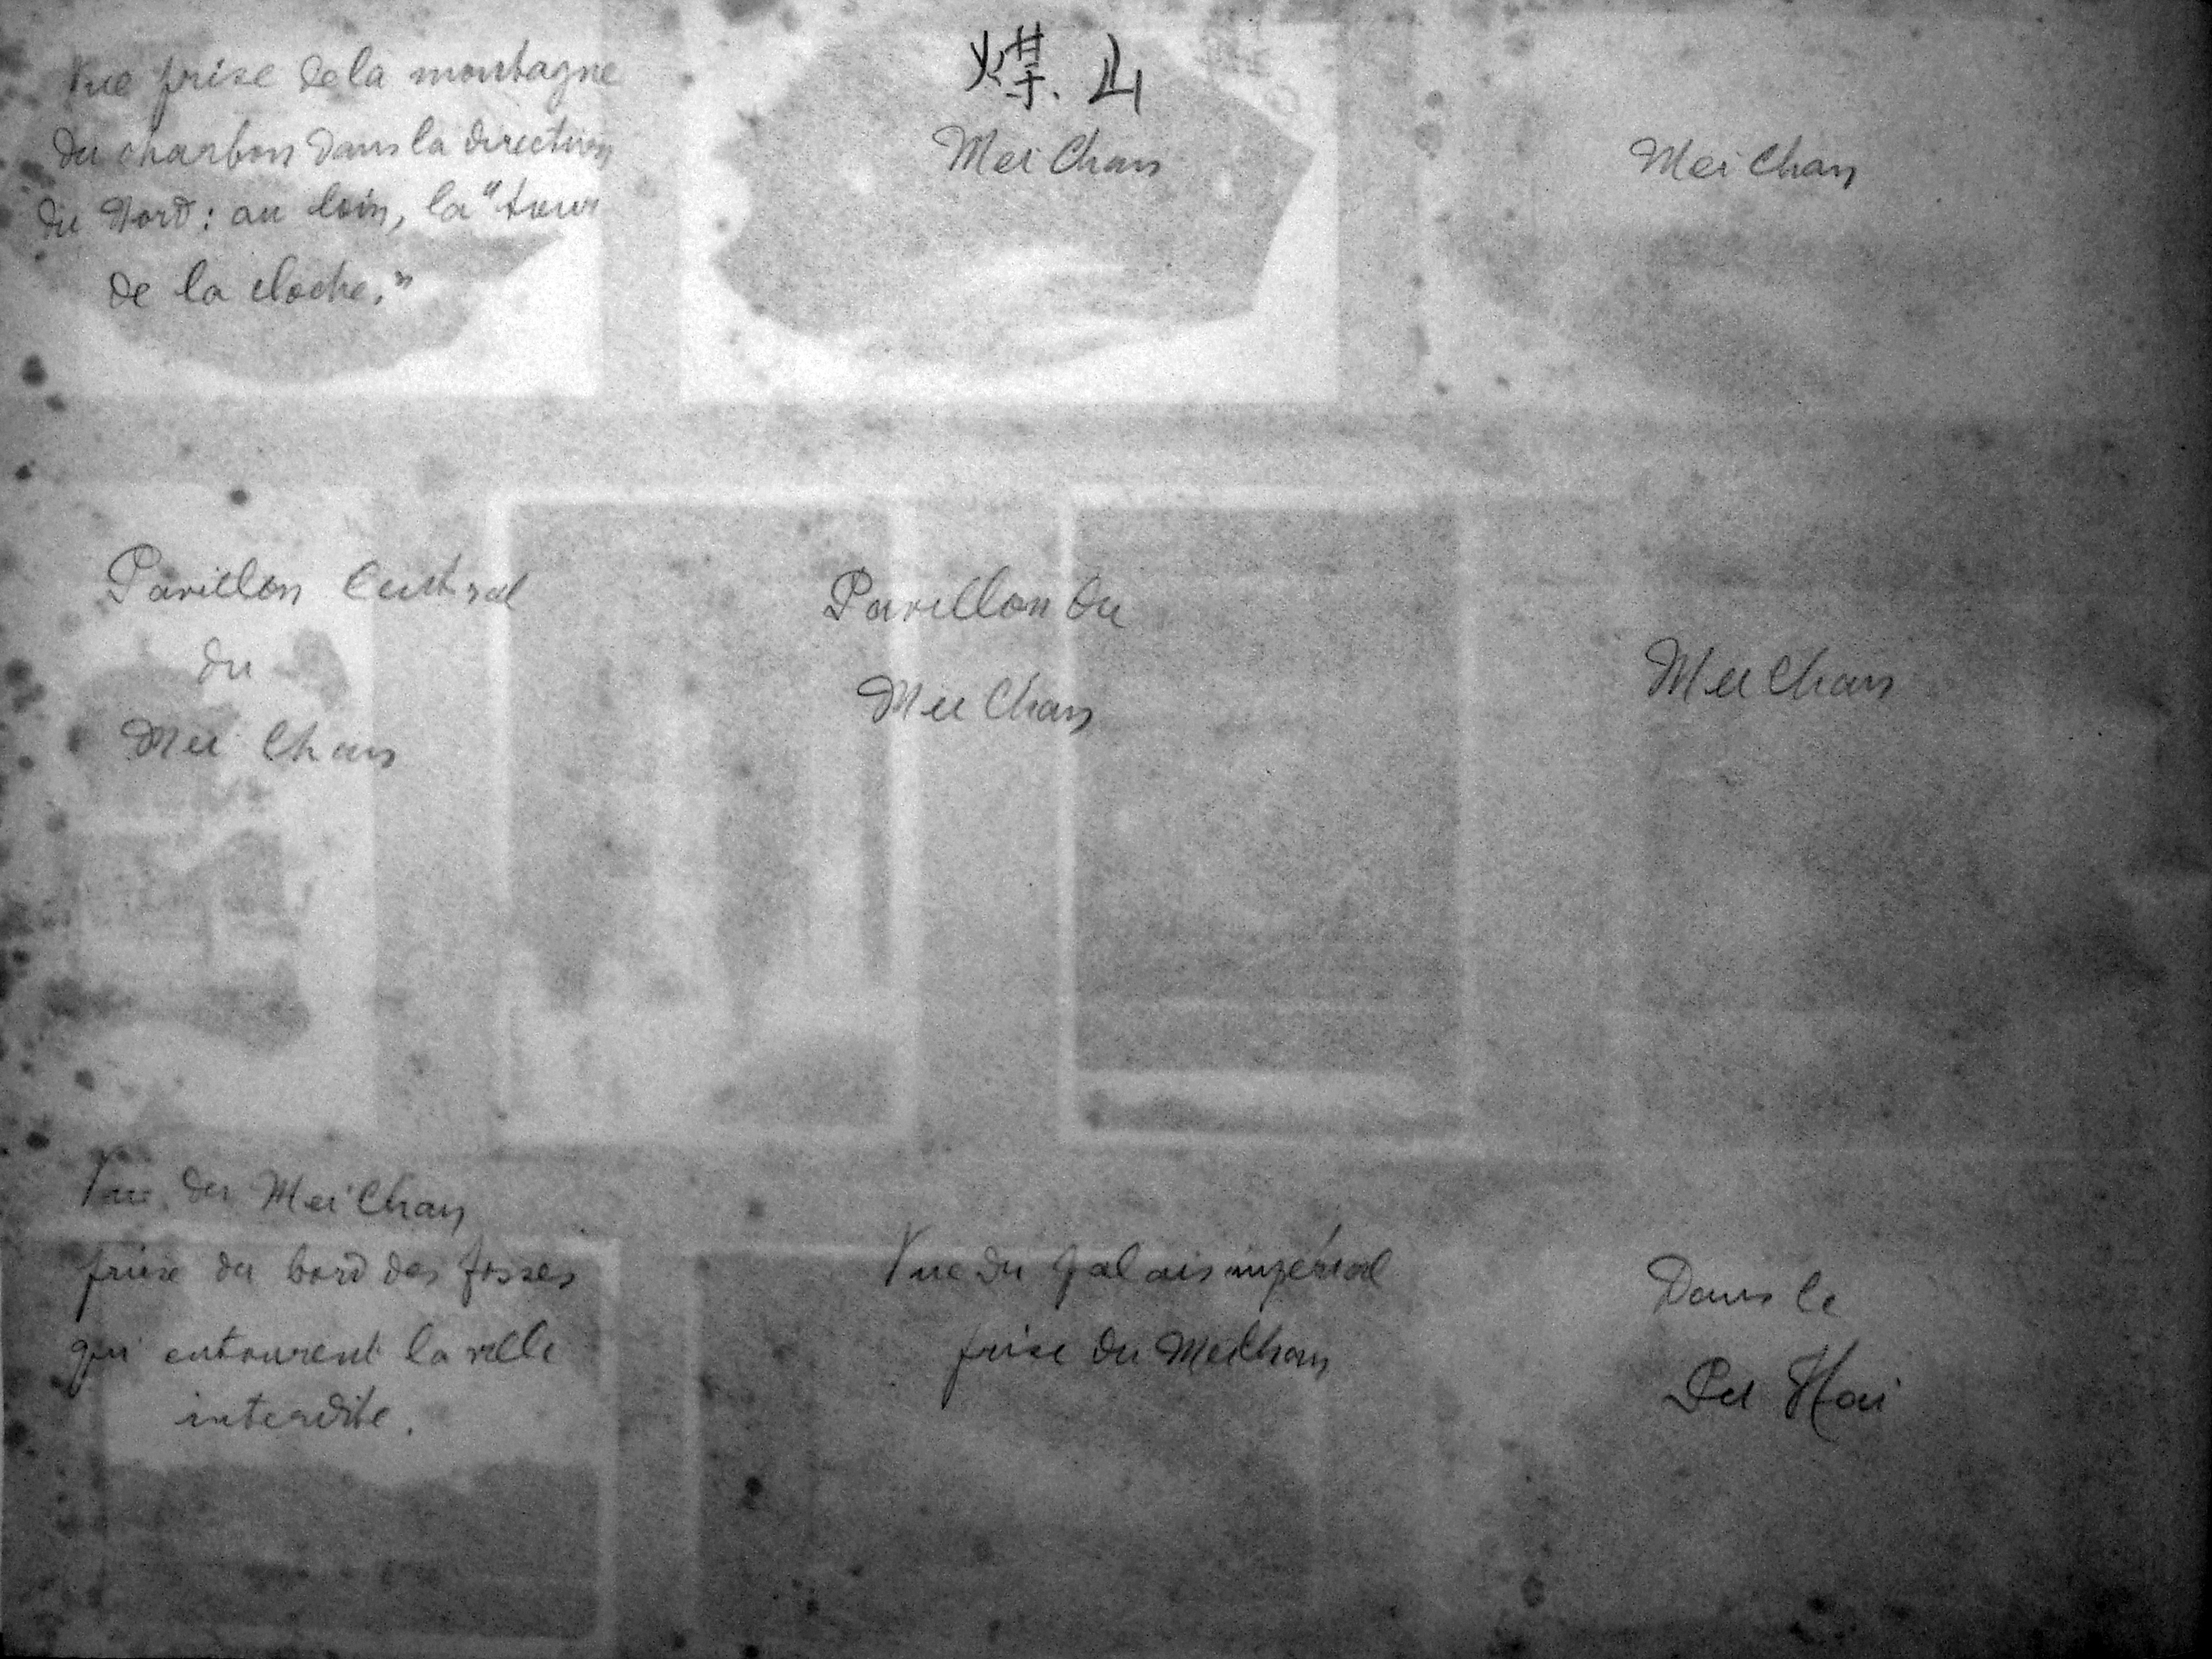 Vue prise de la montagne
du charbon dans la direction
du Nord : au loin, la "tour
de la cloche."
煤山
Mei Chan
Mei Chan
Pavillon Central
du
Mei Chan
Pavillon du
Mei Chan
Mei Chan
Vue du Mei Chan
prise du bord des fossés
qui entourent la ville
interdite.
Vue du palais impérial
prise du Mei Chan
Dans le
Pei Hai